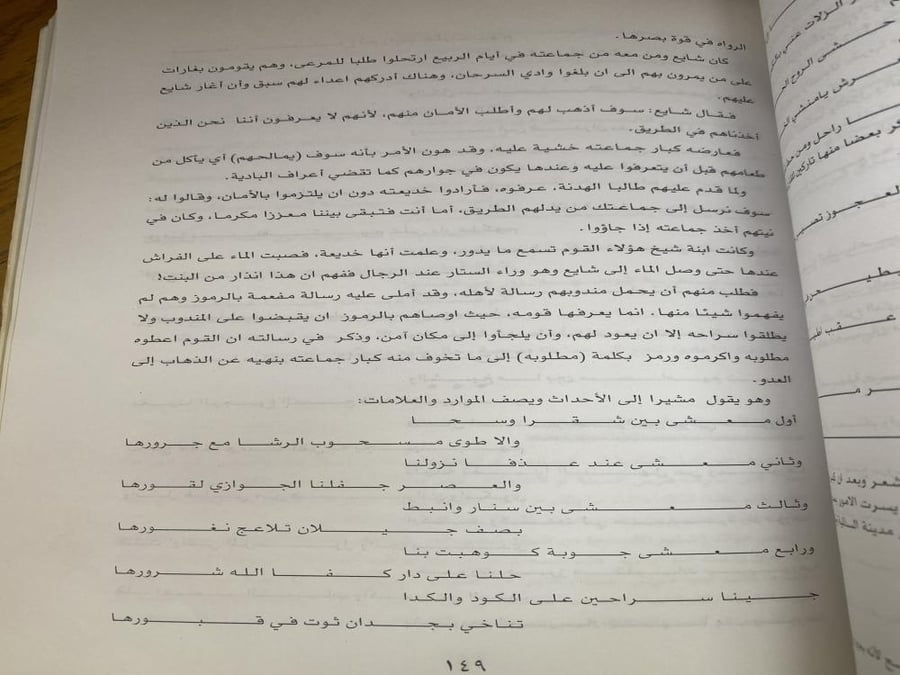 الرواه في قوة بصرها.
كان شايع ومن معه من جماعته في أيام الربيع ارتحلوا طلبا للمرعى، وهم يتومون بغارات
على من يمرون بهم الى ان بلغوا وادي السرحان، وهناك أدركهم اعداء لهم سبق وأن أغار شايع
عليهم.
فقال شايع: سوف أذهب لهم وأطلب الأمان منهم، لأنهم لا يعرفون أننا نحن الذين
أخذناهم في الطريق.
فعارضه كبار جماعته خشية عليه، وقد هون الأمر بأنه سوف (يمالحهم) أي يأكل من
طعامهم قبل أن يتعرفوا عليه وعندها يكون في جوارهم كما تقضي أعراف البادية.
ولما قدم عليهم طالبا الهدنة، عرفوه، فأرادوا خديعته دون ان يلتزموا بالأمان، وقالوا له:
سوف نرسل إلى جماعتك من يدلهم الطريق، أما أنت فتبقى بيننا معززا مكرما، وكان في
نيتهم أخذ جماعته إذا جاؤوا.
وكانت ابنة شيخ هؤلاء القوم تسمع ما يدور، وعلمت أنها خديعة، فصبت الماء على الفراش
عندها حتى وصل الماء إلى شايع وهو وراء الستار عند الرجال ففهم ان هذا انذار من البنت!
فطلب منهم أن يحمل مندوبهم رسالة لأهله، وقد أملى عليه رسالة مفعمة بالرموز وهم لم
يفهموا شيئا منها. انما يعرفها قومه، حيث اوصاهم بالرموز ان يقبضوا على المندوب ولا
يطلقوا سراحه إلا ان يعود لهم، وأن يلجأوا إلى مكان آمن، وذكر في رسالته ان القوم اعطوه
مطلوبه واكرموه ورمز بكلمة (مطلوبه) إلى ما تخوف منه كبار جماعته بنهيه عن الذهاب إلى
العدو.
وهو يقول مشيرا إلى الأحداث ويصف الموارد والعلامات:
أول معشى بين شقرا وسحا
والا طوى مسحوب الرشا مع جرورها
وثاني معشى عند عذفا نزولنا
والعصر جفلنا الجوازي لقورها
وثالث معشى بين سنار وانبط
بصف جيلان تلاعج نغورها
ورابع معشى جوبة كوهبت بنا
حلنا على دار كفا الله شرورها
جينا سراحين على الكود والكدا
تناخي بجدان ثوت في قبورها
١٤٩